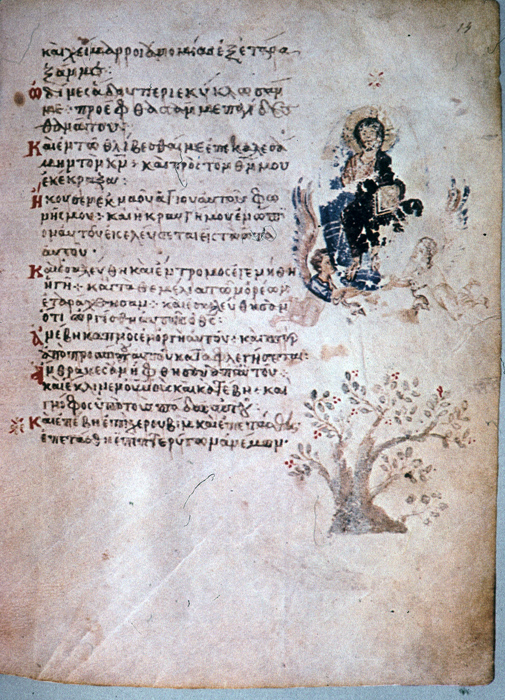 καὶ χείμαρροι ἀνομίας ἐξετάρα
ξάν με:
ὠδῖνες ᾅδου περιεκύκλωσάν
με· προέφθασάν με παγίδες
θανάτου·
Καὶ ἐν τῷ θλίβεσθαί με ἐπεκαλεσά
μην τὸν κν· καὶ πρὸς τὸν θν μου
ἐκέκραξα:
Ἤκουσεν ἐκ ναοῦ ἁγίου αὐτοῦ φω
νῆς μου· καὶ ἡ κραυγή μου ἐνώπι
ον αὐτοῦ εἰσελεύσεται εἰς τὰ ὦτα
αὐτοῦ·
Καὶ ἐσαλεύθη καὶ ἔντρομος ἐγενήθη
ἡ γῆ· καὶ τὰ θεμέλια τῶν ὀρέων
ἐταράχθησαν· καὶ ἐσαλεύθησαν
ὅτι ὠργίσθη αὐτοῖς ὁ θς·
Ἀνέβη καπνὸς ἐν ὀργῇ αὐτοῦ· καὶ πῦρ
ἀπὸ προσώπου αὐτοῦ καταφλεγήσεται·
Ἄνθρακες ἀνήφθησαν ἀπ' αὐτοῦ·
καὶ ἔκλινεν οὐνους καὶ κατέβη· καὶ
γνόφος ὑπὸ τοὺς πόδας αὐτοῦ
Καὶ ἐπέβη ἐπὶ χερουβιμ καὶ ἐπετάσθη·
ἐπετάσθη ἐπὶ πτερύγων ἀνέμων·